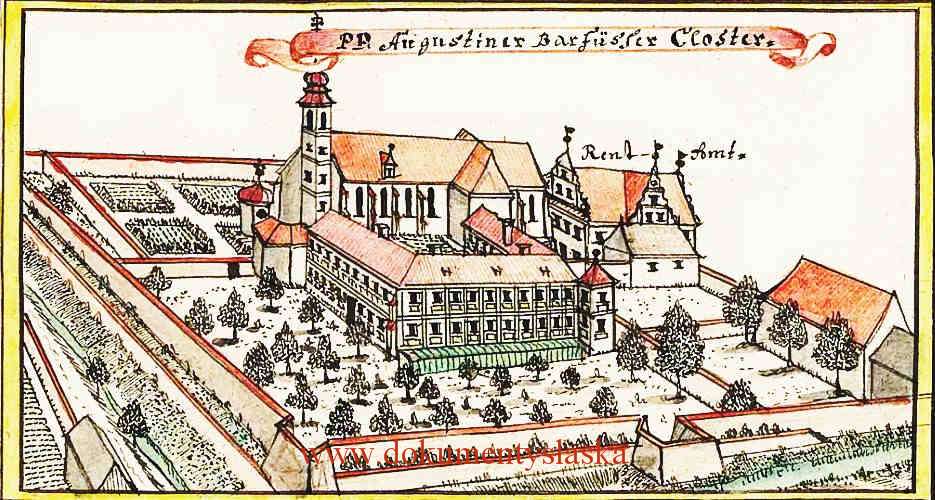 PP. Augustiner Barfüsser Closter.
Rent-Amt.
www.dokumentyslaska